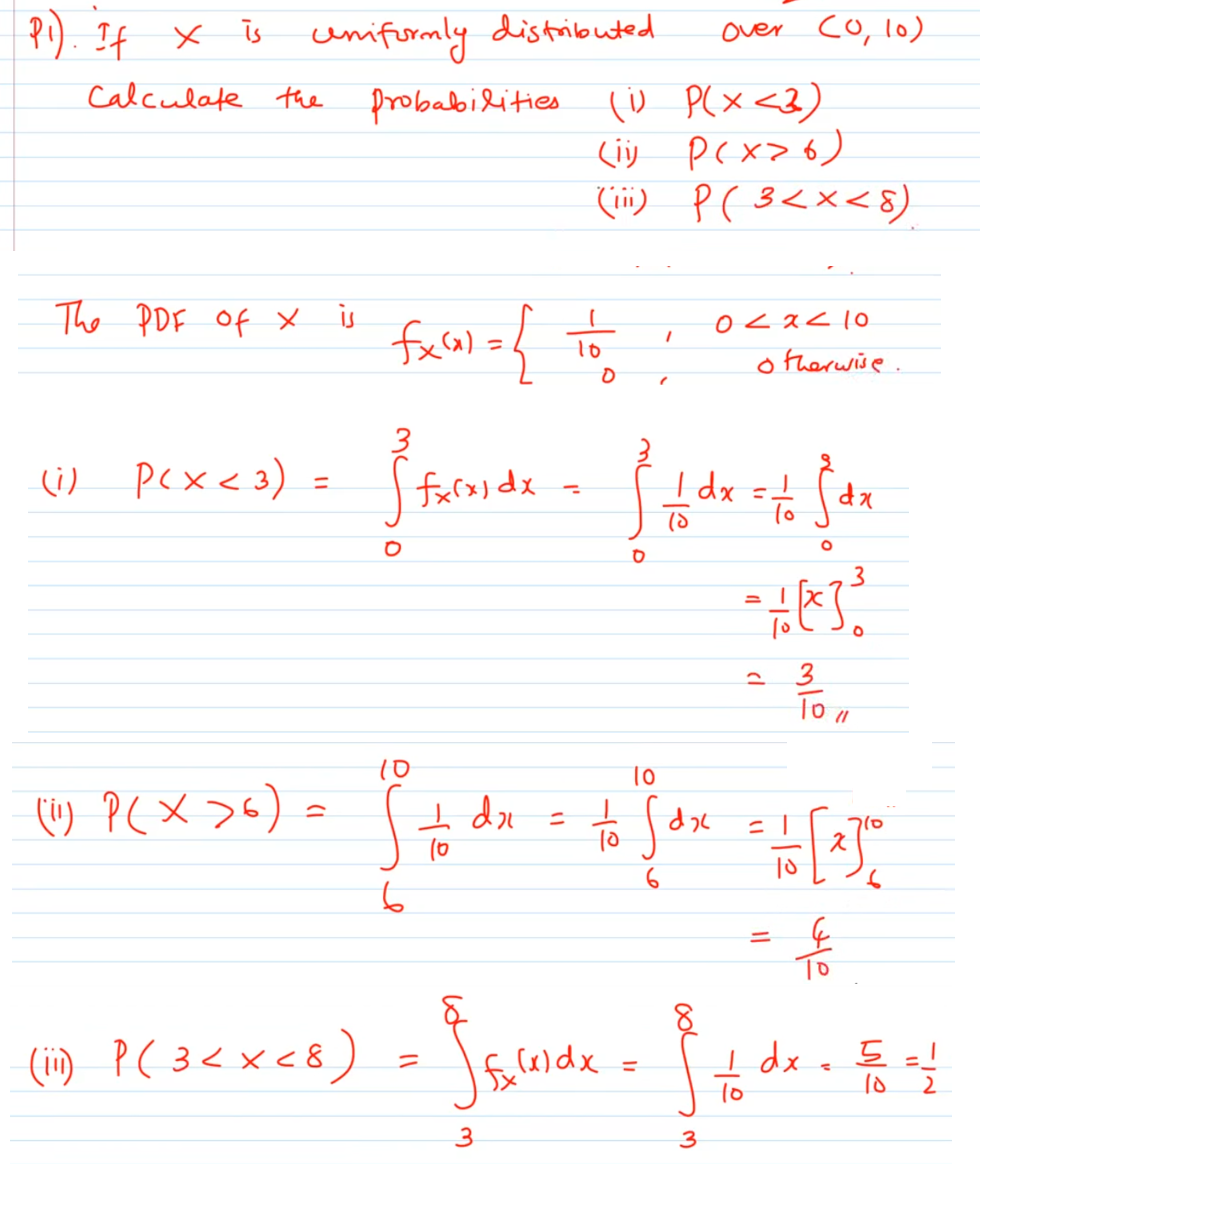 P1). If X is uniformly distributed over (0, 10)
Calculate the probabilities (i) P(X < 3)
(ii) P(X > 6)
(iii) P(3 < X < 8).
The PDF of X is f_X(x) = { 1/10 , 0 < x < 10
0 , otherwise.
(i) P(X < 3) = ∫_0^3 f_X(x) dx = ∫_0^3 1/10 dx = 1/10 ∫_0^3 dx
= 1/10 [x]_0^3
= 3/10 //
(ii) P(X > 6) = ∫_6^10 1/10 dx = 1/10 ∫_6^10 dx = 1/10 [x]_6^10
= 4/10
(iii) P(3 < X < 8) = ∫_3^8 f_X(x) dx = ∫_3^8 1/10 dx = 5/10 = 1/2